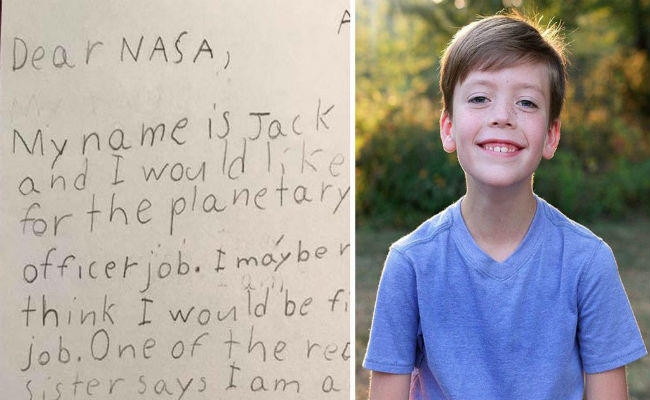 Dear NASA,
My name is Jack
and I would like
for the planetary
officer job. I maybe
think I would be
job. One of the
sister says I am a